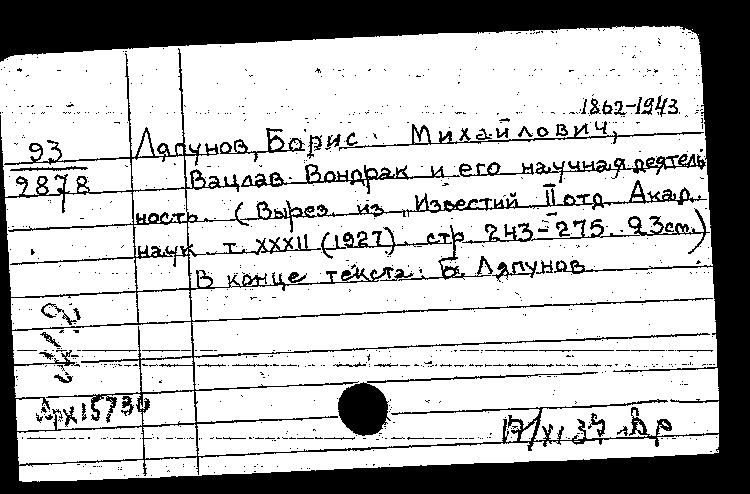 1862-1943
93
2878
Ляпунов, Борис Михайлович,
Вацлав Вондрак и его научная деятель
ность. (Вырез. из „Известий II отд. Акад.
наук т. XXXII (1927) стр. 243-275. 23cm.)
В конце текста: Б. Ляпунов
Арх 15730
17/XI 37